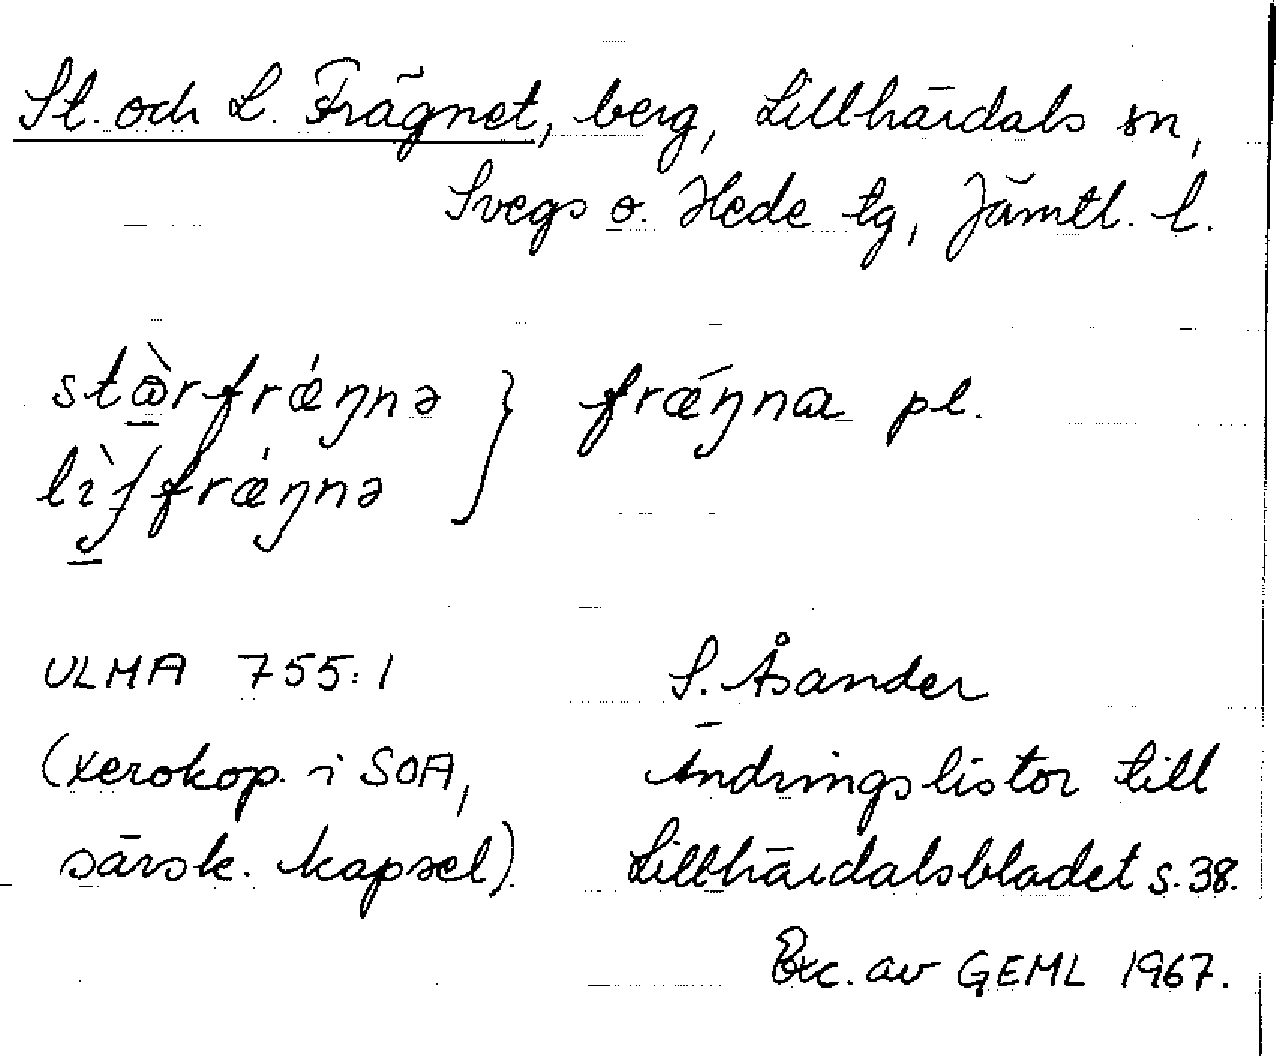 St. och L. Frägnet, berg, Lillhärdals sn,
Svegs o. Hede tg, Jämtl. l.
stɷ̀rfrǽŋnə } frǽŋna pl.
lìʃfrǽŋnə
ULMA 755:1 S. Åsander
(xerokop. i SOA, Ändringslistor till
särsk. kapsel). Lillhärdalsbladet s. 38.
Exc. av GEML 1967.